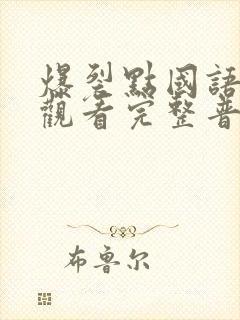 爆裂點國語
觀看完整普
布鲁尔